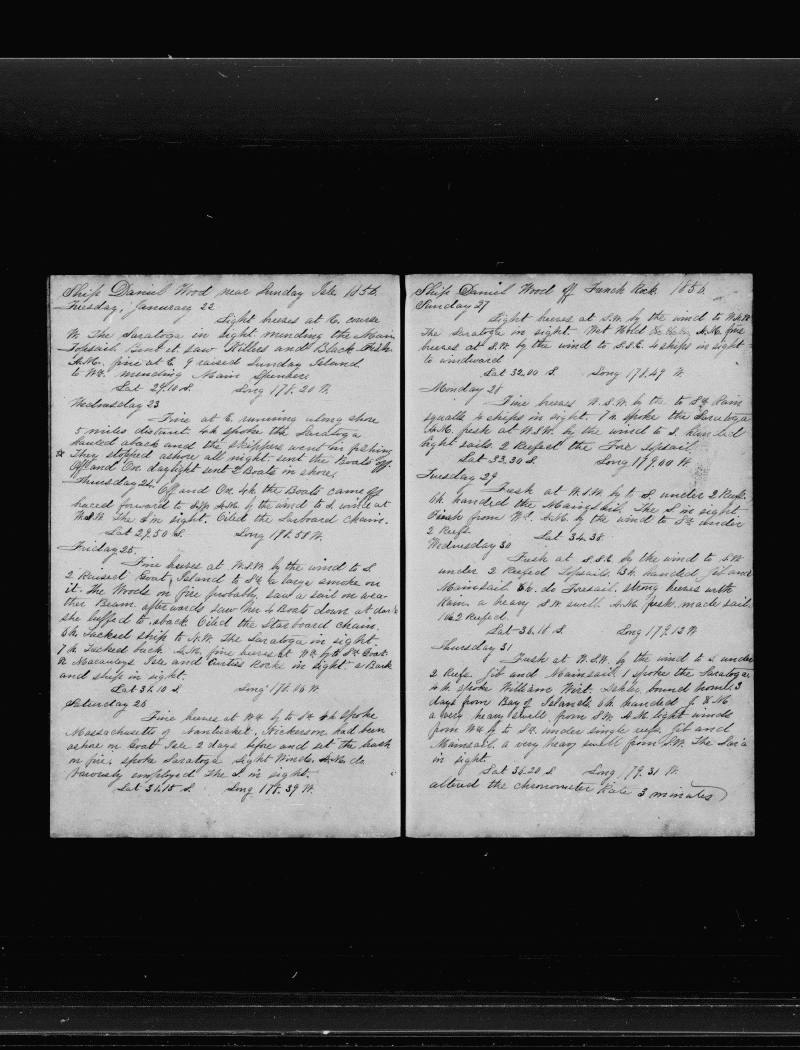 Ship Daniel Wood near Sunday Isle 1856
Tuesday, January 22
Light breeses at E. course
W. The Saratoga in sight. mending the Main
Topsail. Bent it. saw Killers and Black Fish
A.M. fine at E. 9 raised Sunday Island
to Wd. mending Main Spencer
Lat 29.10 S. Long 178.20 W.
Wednesday 23
Fine at E. running along shore
5 miles distant. 4h spoke the Saratoga
hauled aback and the skippers went in fishing
They stopped ashore all night. sent the Boats off
Off and On. daylight sent 2 Boats in shore.
Thursday 24 Off and On. 4h the Boats came off
braced forward to A.M. by the wind to S. wind at
W.S.W. The S in sight. Oiled the Larboard chain.
Lat 29.50 S. Long 178.58 W.
Friday 25.
Fine breeses at W.S.W. by the wind to S.
2 Raised Goat Island to Sd a large smoke on
it. The Woods on fire probably. saw a sail on wea-
ther Beam. afterwards saw her 4 Boats down at dark
she luffed to. aback Oiled the Starboard chain.
6h Tacked ship to N.W. The Saratoga in sight.
7h Tacked back. A.M. fine breeses at Wd. by to Sd Goat
Macauleys Isle and Curtis Rocks in sight. a Bark
and ship in sight.
Lat 31.10 S Long 178.46 W.
Saturday 26
Fine breeses at Wd by to Sd 4h Spoke
Massachusetts of Nantucket, Nickerson had been
ashore on Goat Isle 2 days before and set the bush
on fire. spoke Saratoga Light Winds, A.M. do
variously employed The S. in sight.
Lat 31.15 S. Long 178.39 W.
Ship Daniel Wood off French Rock. 1856
Sunday 27
Light breeses at S.W. by the wind to W.N.W
The Saratoga in sight. A.M. fine
breeses at S.W. by the wind to S.S.E. 4 ships in sight
to windward
Lat 32.00 S. Long 178.49 W.
Monday 28
Fine breeses W.S.W. by the to Sd Rain
squalls 4 ships in sight. 1h spoke the Saratoga
A.M. fresh at W.S.W. by the wind to S. handed
light sails 2 Reefed the Fore Topsail.
Lat 33.30 S. Long 179.00 W.
Tuesday 29
Fresh at W.S.W. by to S. under 2 Reefs.
6h handed the Mainsail. The S in sight
Fresh from Wd. A.M. by the wind to Sd under
2 Reefs. Lat 34.38
Wednesday 30
Fresh at S.S.E. by the wind to S.W.
under 2 Reefed Topsails. handed Jib and
Mainsail. 6h. do Foresail. strong breeses with
Rain. a heavy S.W. swell. A.M. fresh. made sail
1 & 2 Reefed.
Lat 34.18 S. Long 179.13 W
Thursday 31
Fresh at W.S.W. by the wind to S. under
2 Reefs. Jib and Mainsail. 1 spoke the Saratoga
4h spoke William Wirt. bound home. 3
days from Bay of Islands. 6h handed J. & M.
a very heavy swell from S.W. A.M. light winds
from Wd by to Sd. under single reefs. Jib and
Mainsail. a very heavy swell from S.W. The
in sight
Lat 34.20 S. Long 179.31 W.
altered the chronometer Rate 3 minutes